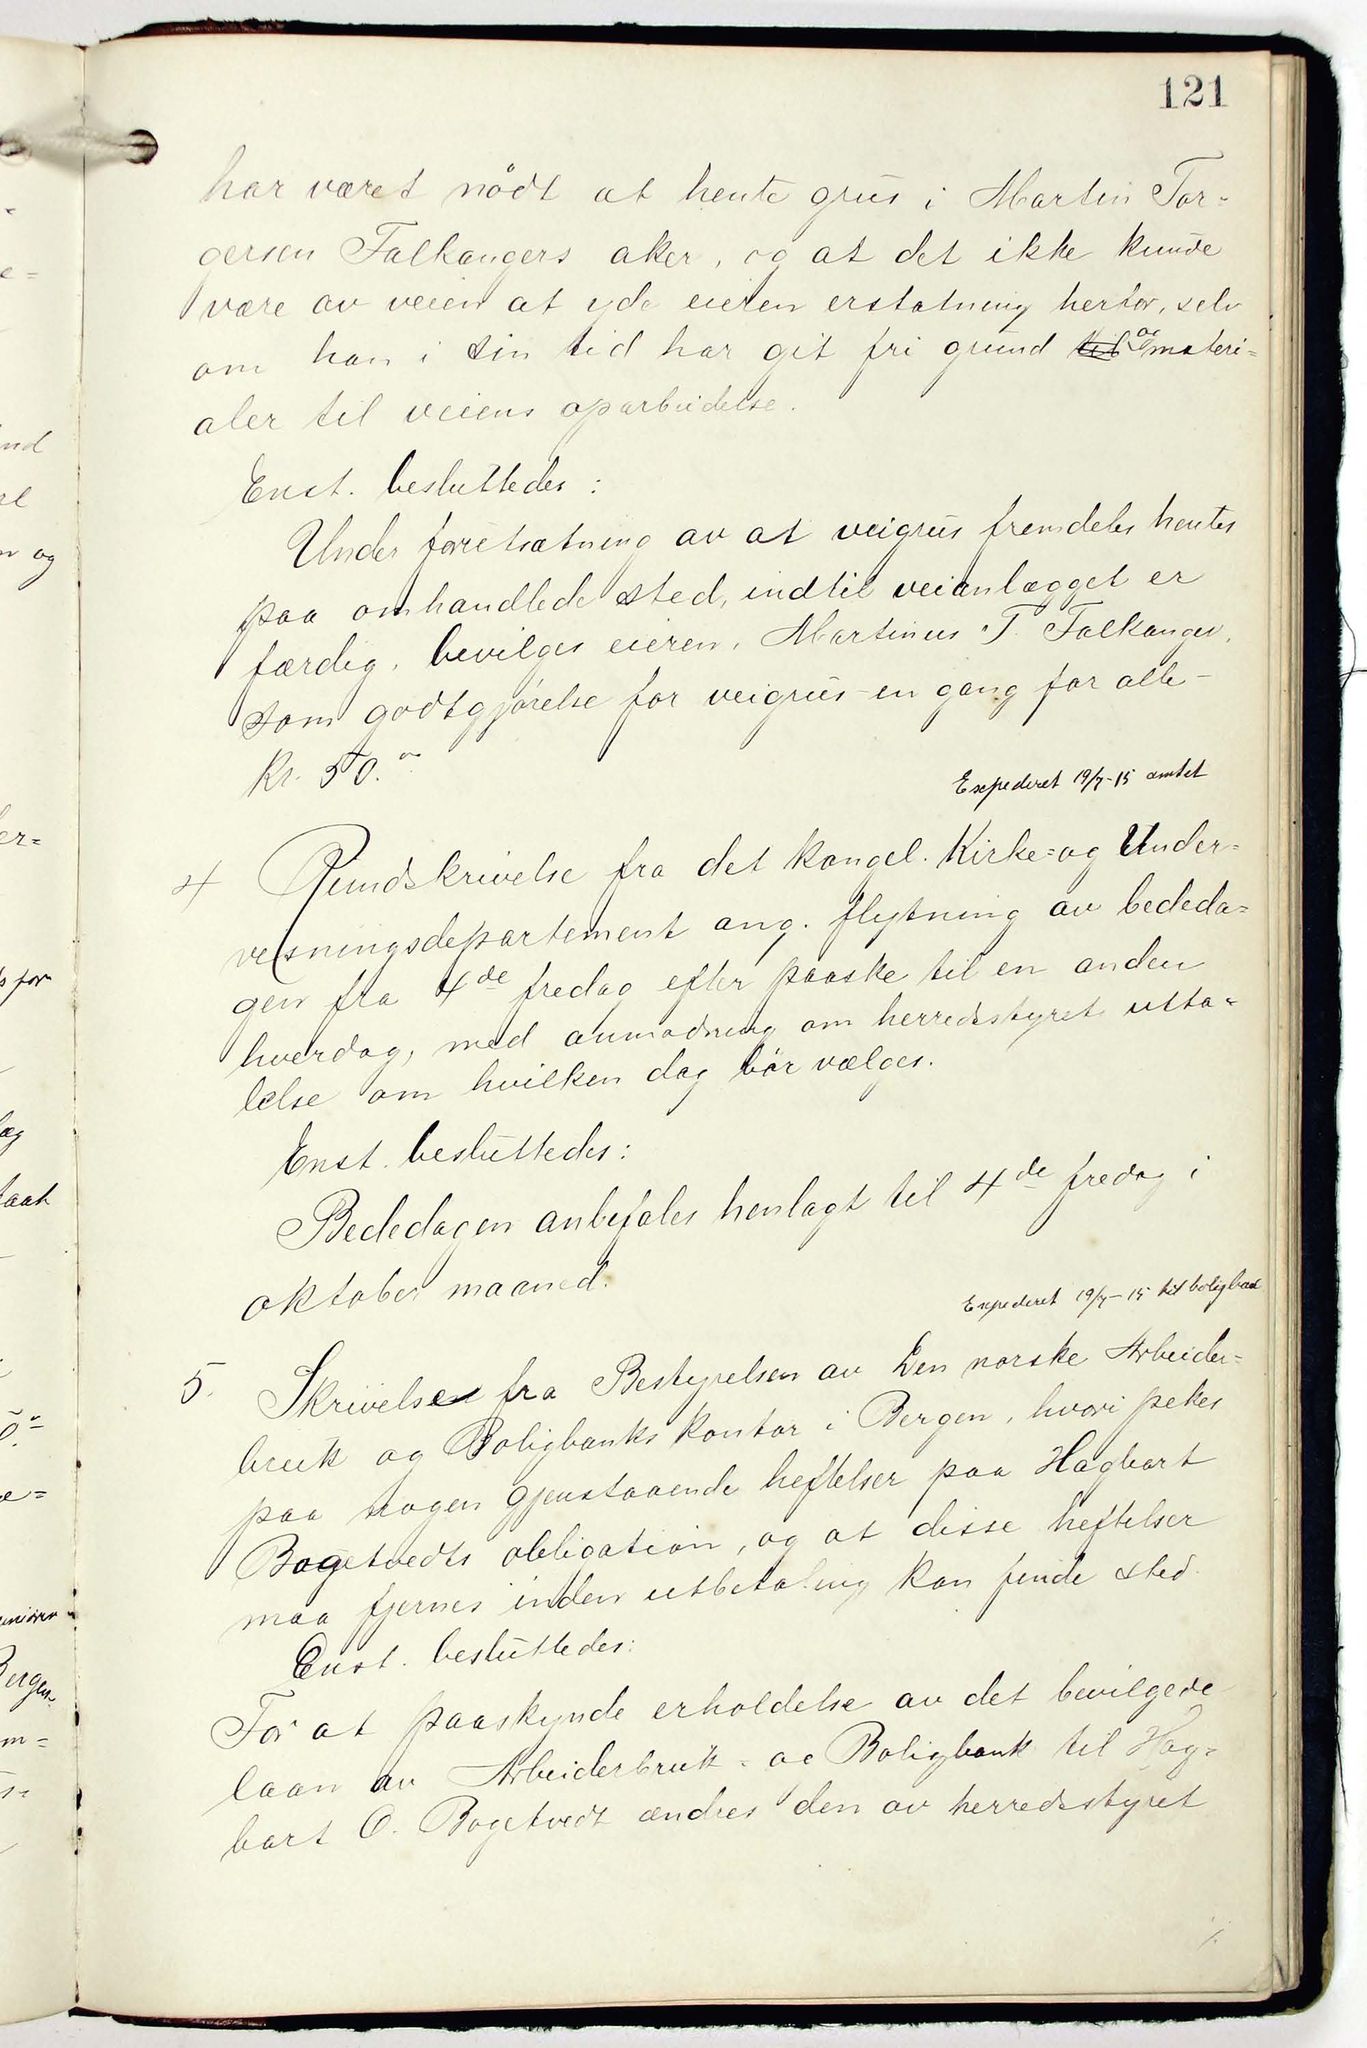 121
har været nödt at hente grus i Martin Tor-
gersen Falkangers aker, og at det ikke kunde
være av veien at yde eieren erstatning herfor, selv
om han i sin tid har git fri grund til og materi-
aler til veiens oparbeidelse.
Enst. besluttedes:
Under forutsætning av at veigrus fremdeles hentes
paa omhandlede sted, indtil veianlægget er
færdig, bevilges eieren, Martinus T. Falkanger,
som godtgjørelse for veigrus - en gang for alle -
Kr. 50.-
Expederet 19/7-15 amtet
4 Rundskrivelse fra det kongel. Kirke- og Under-
visningsdepartement ang. flytning av bededa-
gen fra 4de fredag efter paaske til en anden
hverdag, med anmodning om herredsstyrets utta-
lelse om hvilken dag bør vælges.
Enst. besluttedes:
Bededagen anbefales henlagt til 4de fredag i
oktober maaned.
Expederet 19/7-15 til boligbank
5. Skrivelse fra Bestyrelsen av Den norske Arbeider-
bruk og Boligbanks kontor i Bergen, hvori pekes
paa nogen gjenstaaende heftelser paa Hagbart
Bogetvedts obligation, og at disse heftelser
maa fjernes inden utbetaling kan finde sted.
Enst. besluttedes:
For at paaskynde erholdelse av det bevilgede
laan av Arbeiderbruk- og Boligbank til Hag-
bart O. Bogetvedt ændres den av herredsstyret